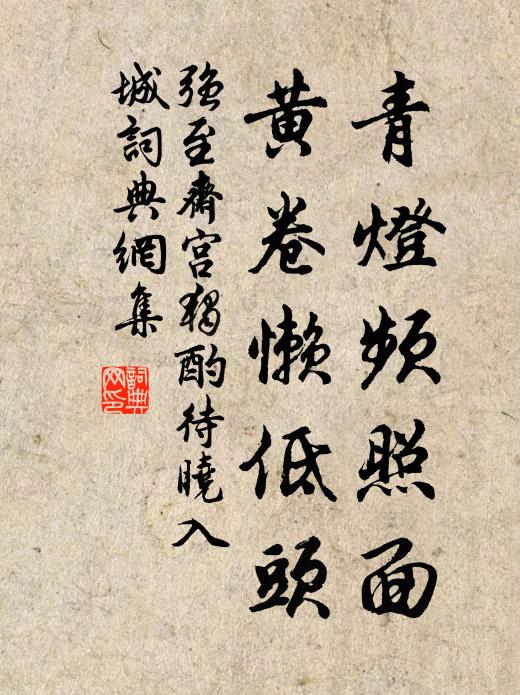 青燈頻照面
黃卷懶低頭
强至齋宮獨酌待曉入
城詞典網集
詞典網印